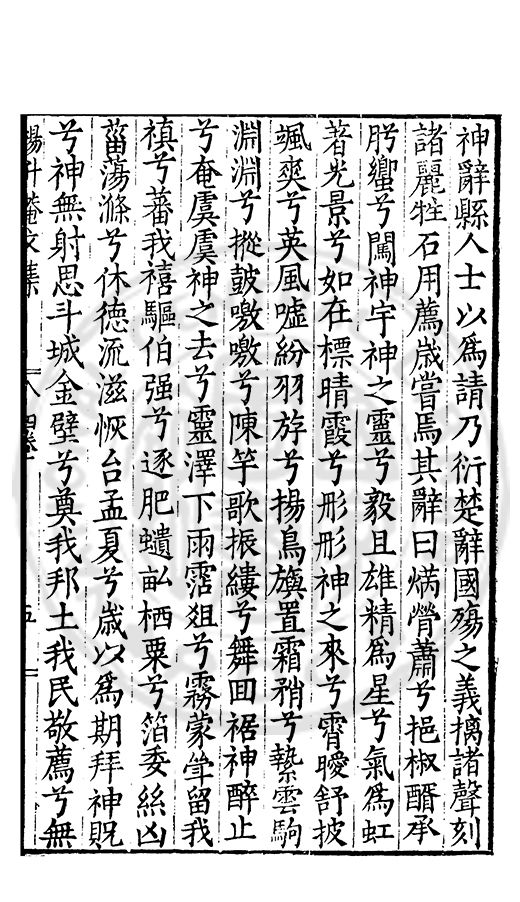 神辭縣人士以爲請乃衍楚辭國殤之義摛諸聲刻
諸麗牲石用薦歲嘗焉其辭曰焫膋蕭兮挹椒醑承
肸蠁兮闖神宇神之靈兮毅且雄精爲星兮氣爲虹
著光景兮如在標晴霞兮彤彤神之來兮霄曖舒披
颯爽兮英風噓紛羽斿兮揚鳥旟置霜矟兮縶雲駒
淵淵兮摐鼓噭噭兮陳竽歌振縷兮舞囬裾神醉止
兮奄虞虞神之去兮靈澤下雨霑俎兮霧蒙斚留我
禛兮蕃我禧驅伯强兮逐肥䗽畝栖粟兮箔委絲凶
菑蕩滌兮休德流滋恢台孟夏兮歲以爲期拜神貺
兮神無射思斗城金壁兮奠我邦土我民敬薦兮無
楊升菴文集 八 四卷 五